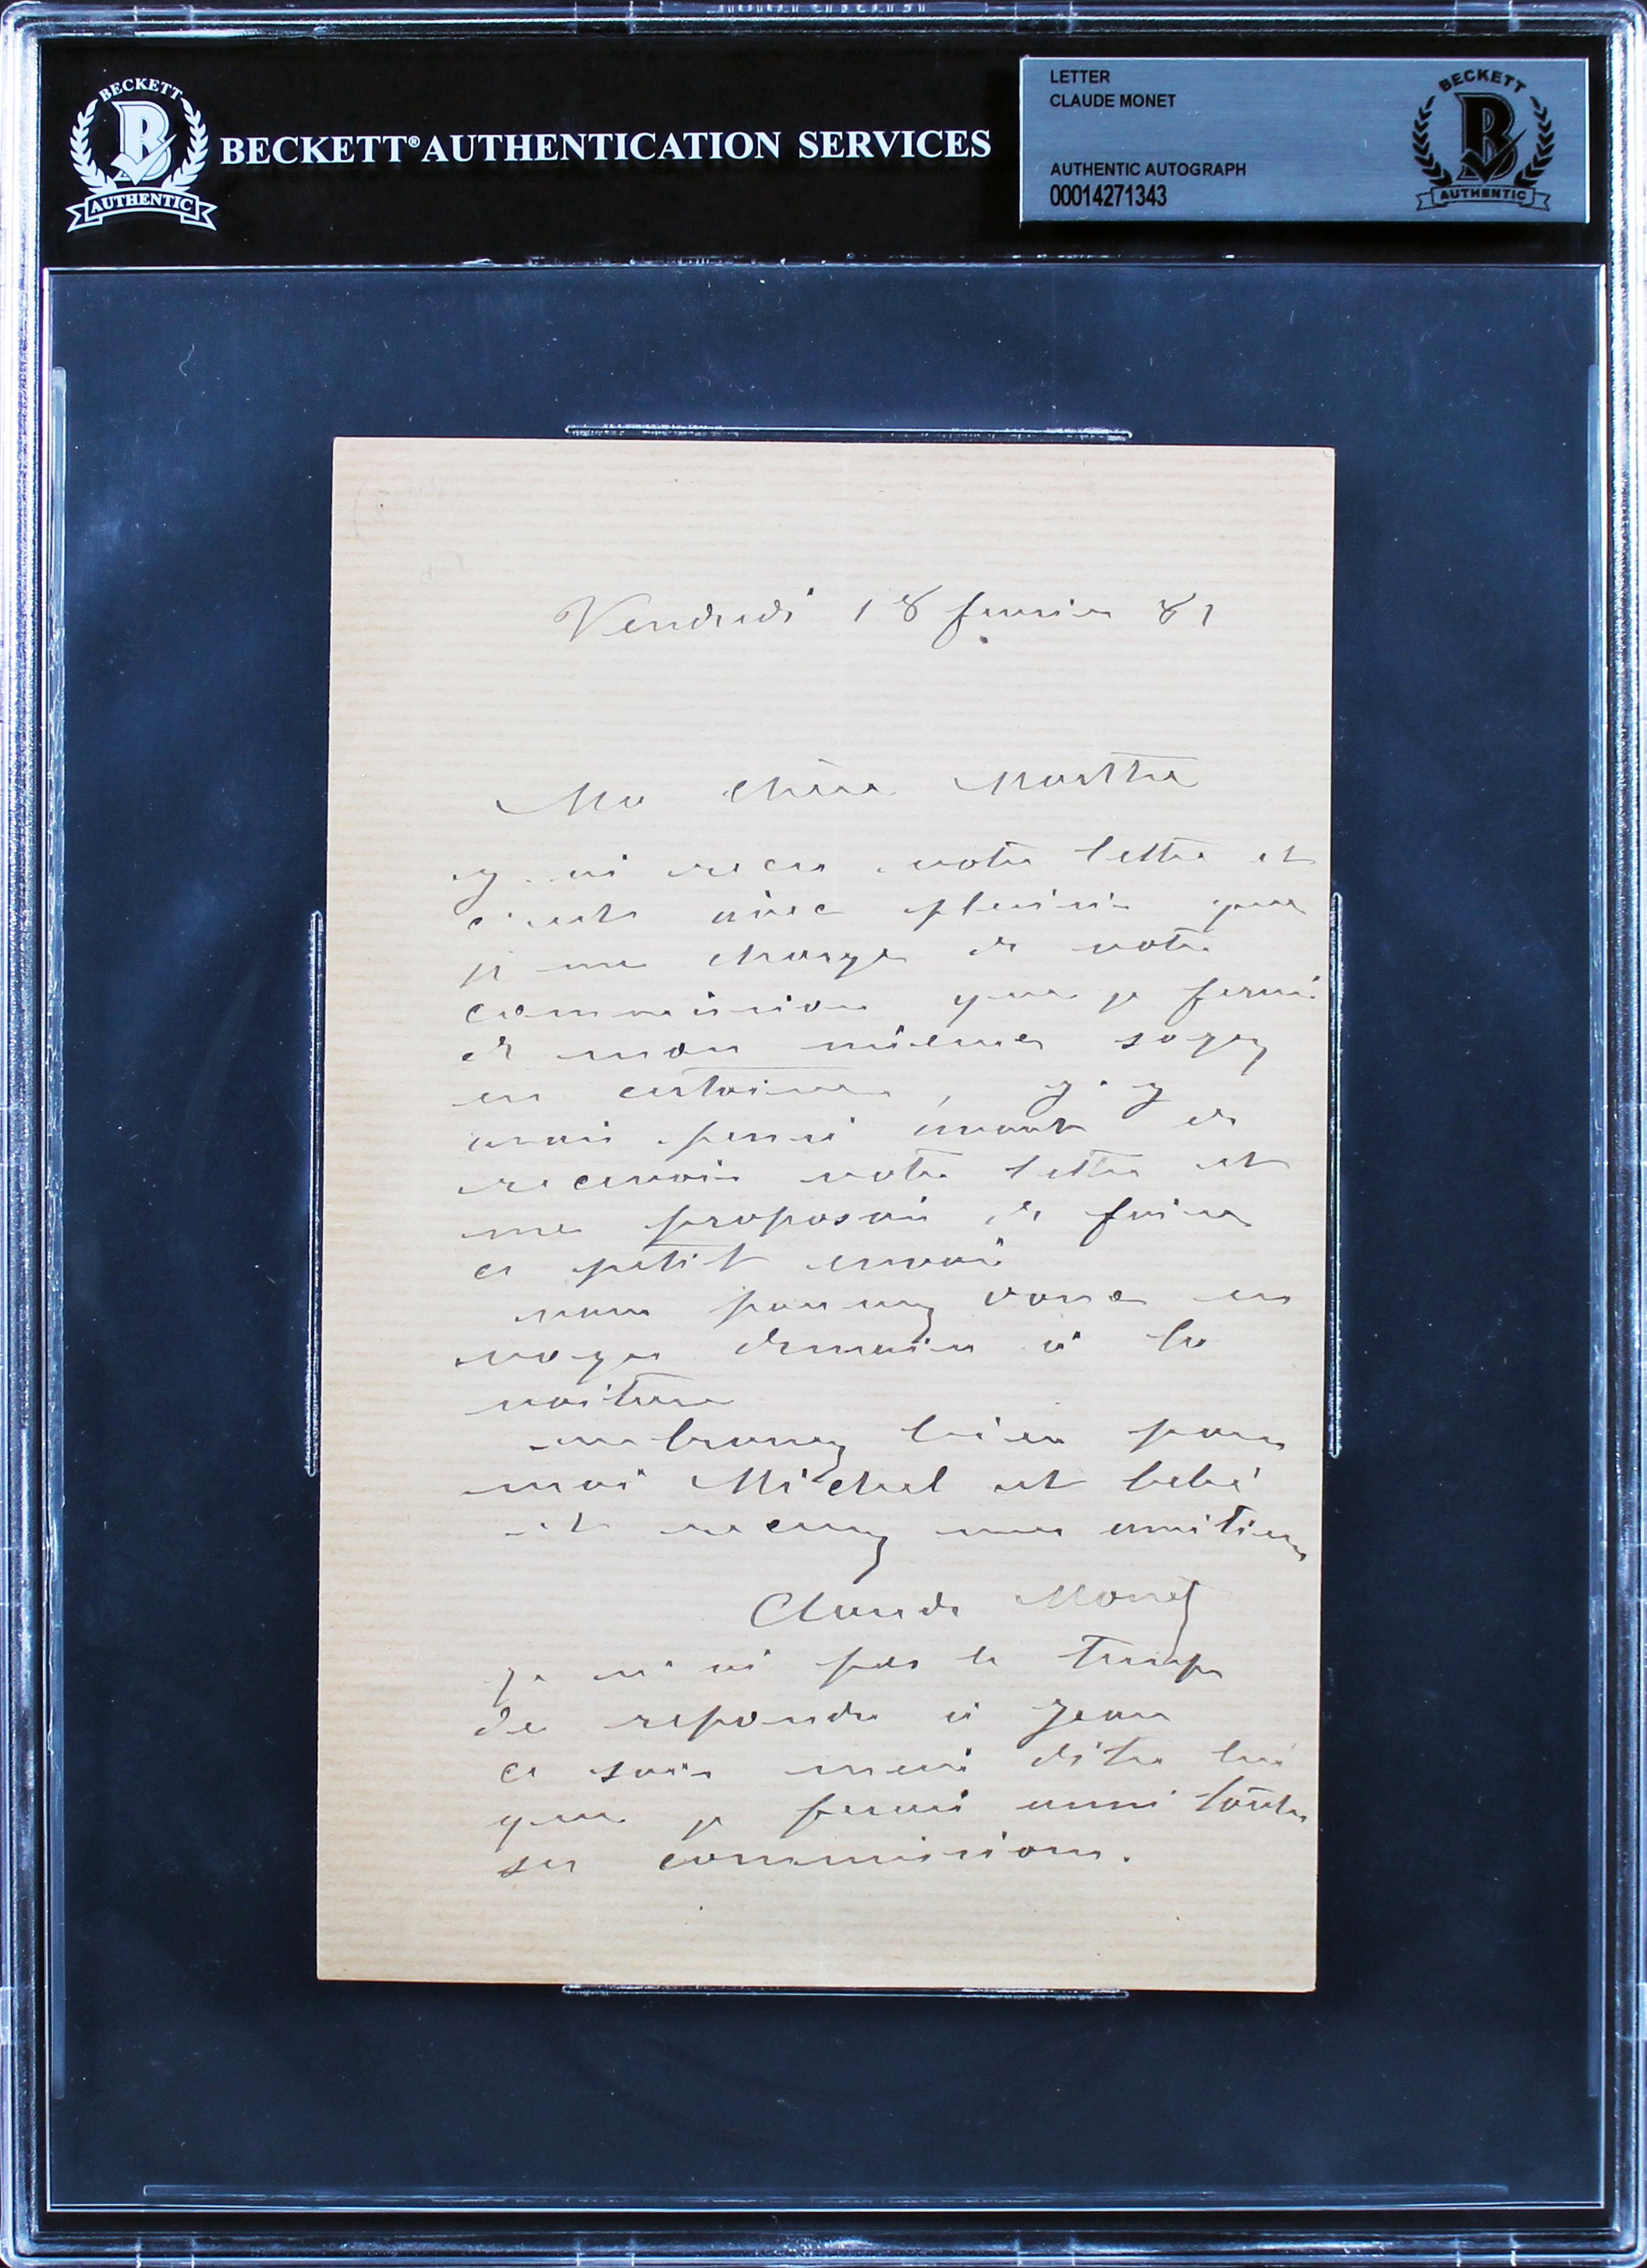 BECKETT
B
AUTHENTIC
BECKETT® AUTHENTICATION SERVICES
LETTER
CLAUDE MONET
AUTHENTIC AUTOGRAPH
00014271343
BECKETT
B
AUTHENTIC
Vendredi 18 fevrier 81
Ma chère Marthe
j'ai recu votre lettre et
c'est avec plaisir que
je me charge de votre
commission que je ferai
de mon mieux soyez
en certaine, j'y
avais pensé avant de
recevoir votre lettre et
me proposais de faire
ce petit envoi
vous pourrez donc en
voyer demain à la
voiture
embrassez bien pour
moi Michel et bébé
et recevez mes amitiés
Claude Monet
je n'ai pas le temps
de repondre à Jean
ce soir mais dites lui
que je ferai aussi toutes
ses commissions.